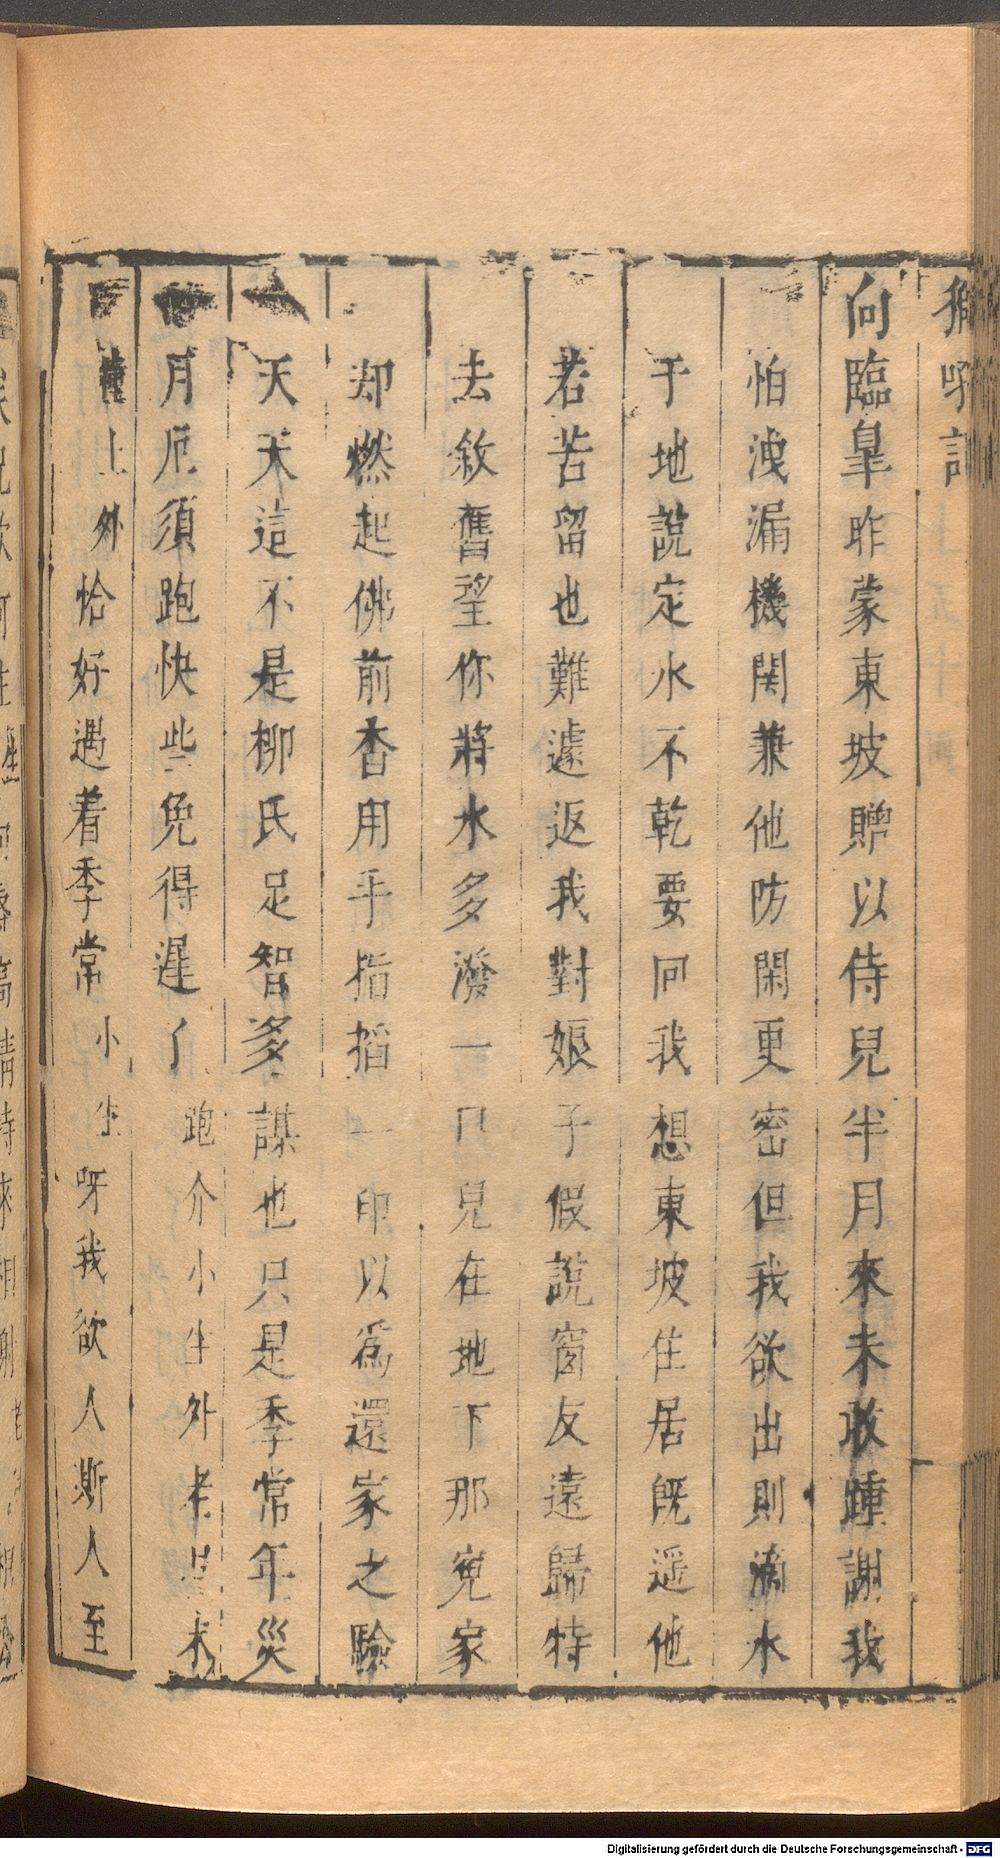 獅吼記
向臨皐昨蒙東坡贈以侍兒半月來未敢踵謝我
怕洩漏機関兼他防閑更密但我欲出則滴水
于地說定水不乾要囘我想東坡住居旣遥他
若苦留也難遽返我對娘子假說窗友遠歸特
去敘舊望你將水多潑一㒳兒在地下那寃家
却燃起佛前香用手指搯一印以爲還家之驗
天天這不是柳氏足智多謀也只是季常年災
月厄須跑快些免得遲了跑介小生外末
上外恰好遇着季常小生呀我欲人斯人至
Digitalisierung gefördert durch die Deutsche Forschungsgemeinschaft - DFG